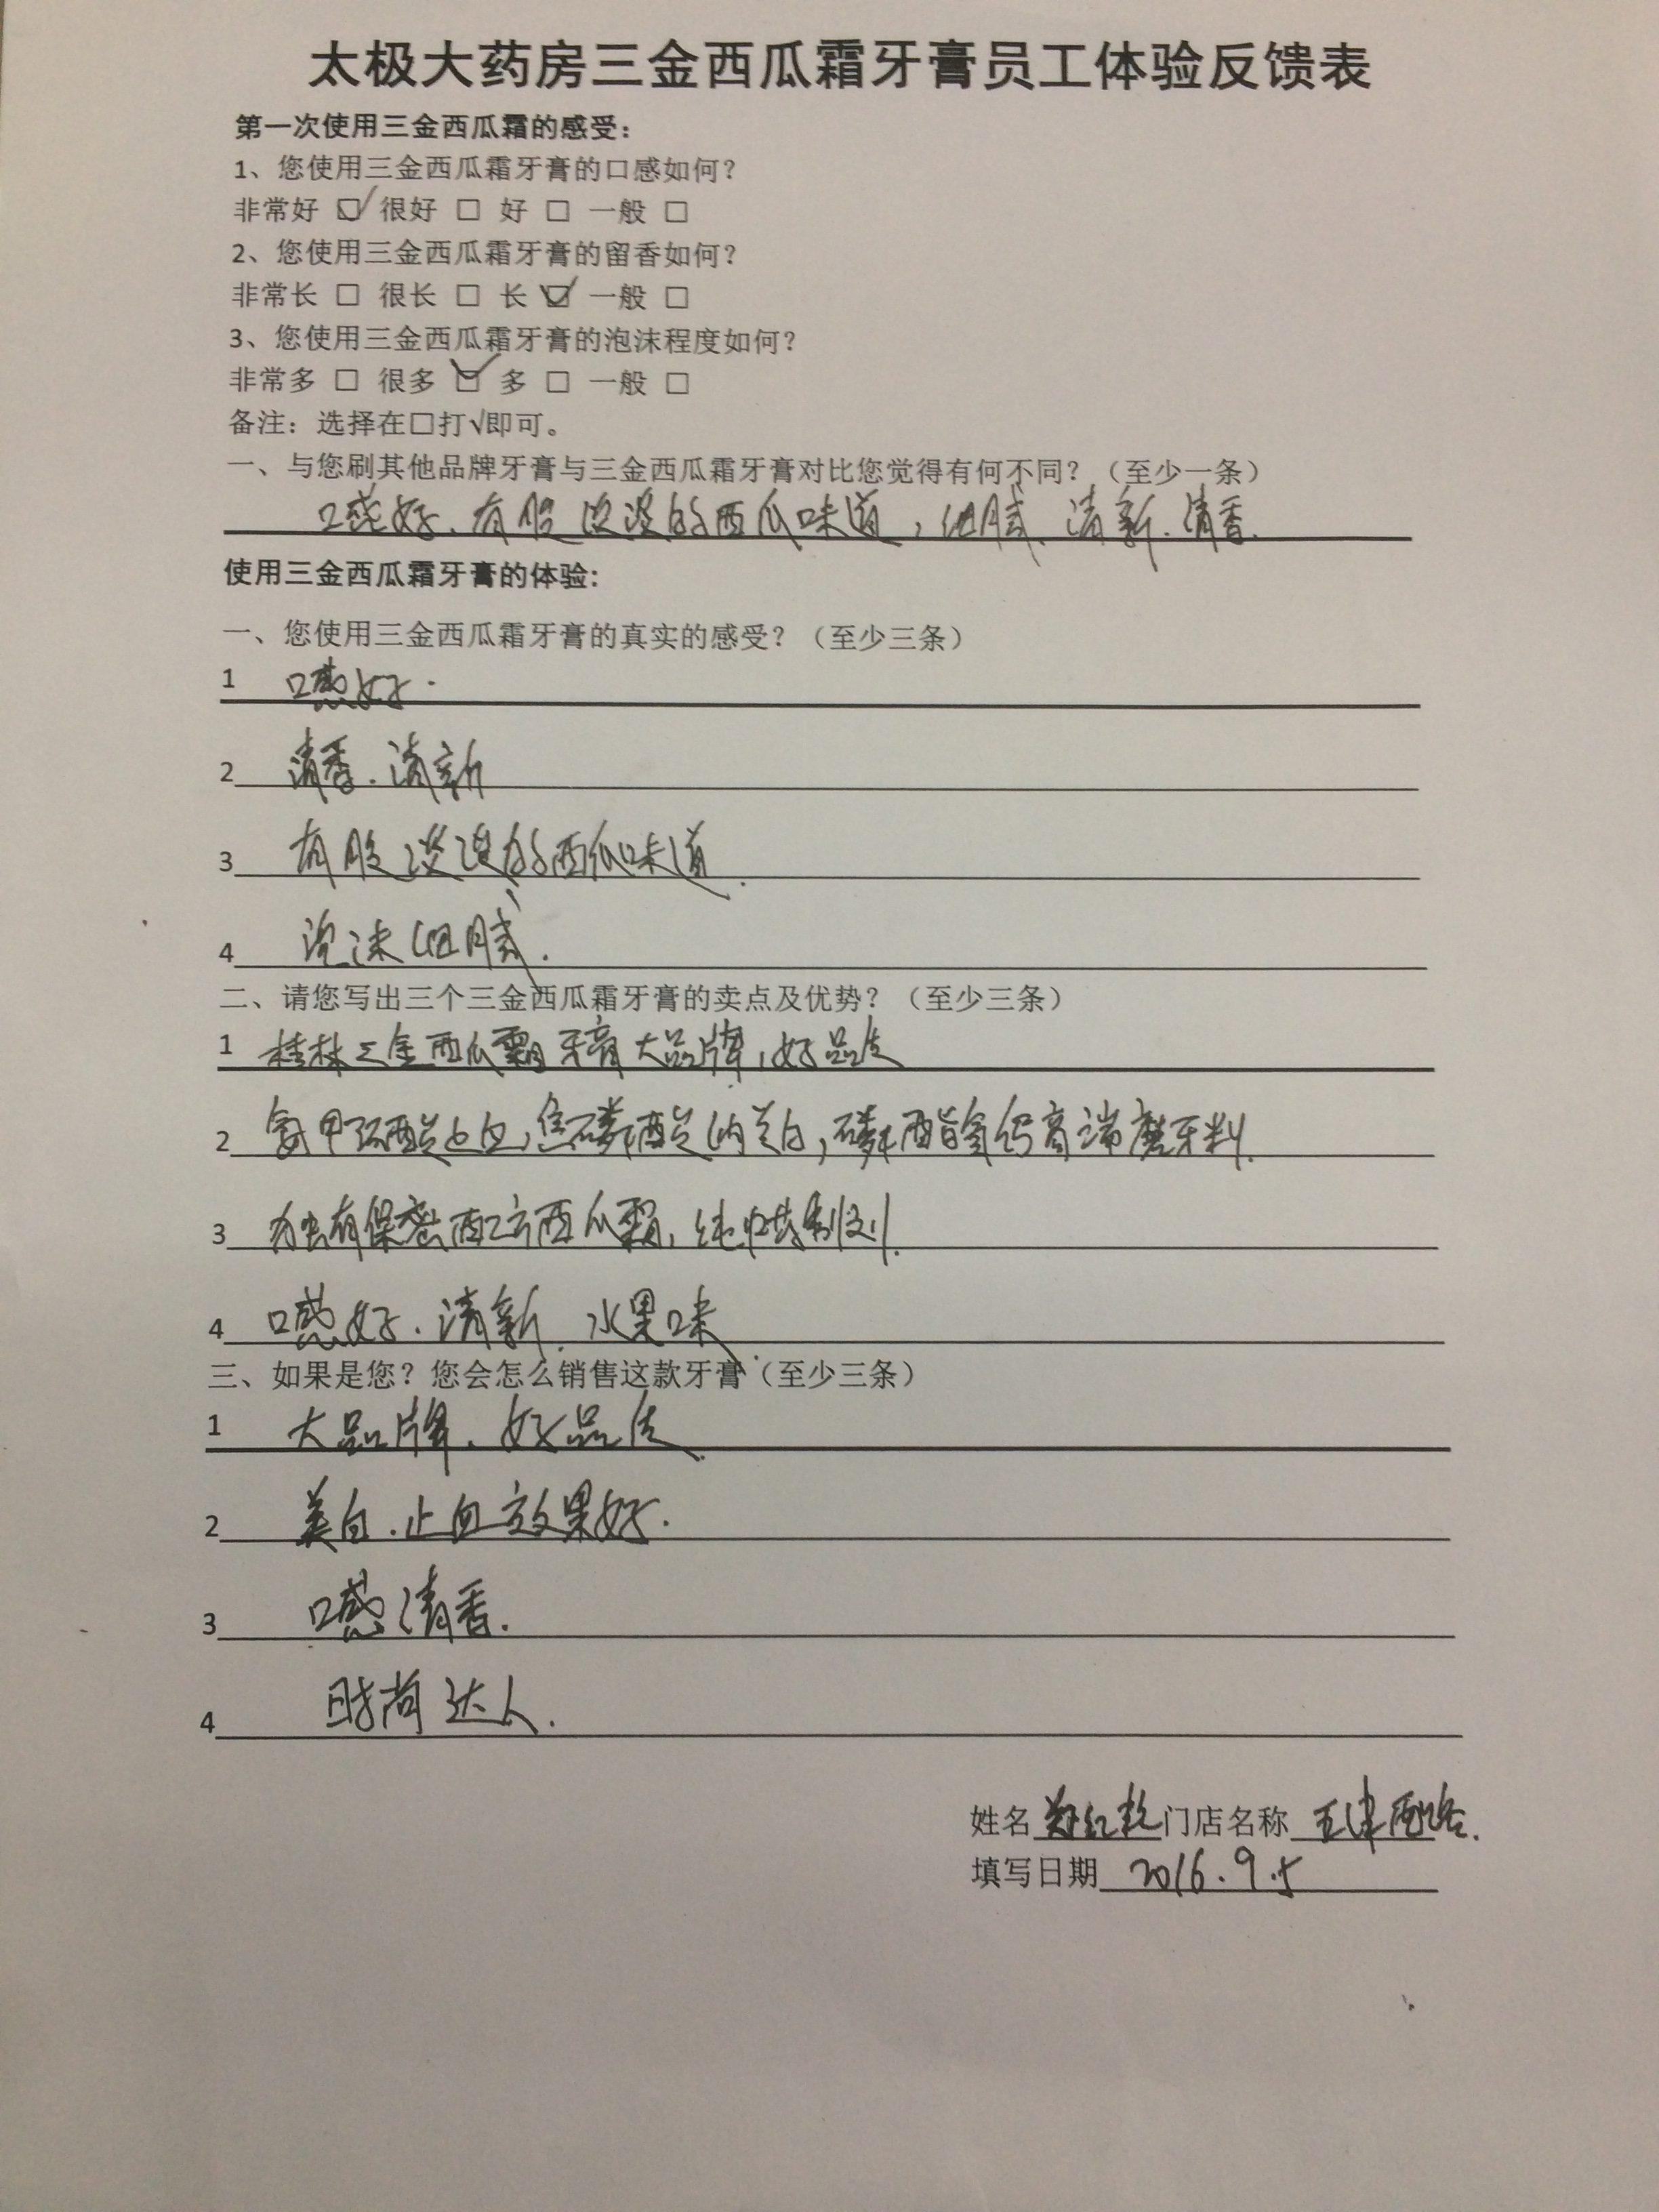 太极大药房三金西瓜霜牙膏员工体验反馈表
第一次使用三金西瓜霜的感受：
1、您使用三金西瓜霜牙膏的口感如何？
非常好 ☑ 很好 □ 好 □ 一般 □
2、您使用三金西瓜霜牙膏的留香如何？
非常长 □ 很长 □ 长 ☑ 一般 □
3、您使用三金西瓜霜牙膏的泡沫程度如何？
非常多 □ 很多 ☑ 多 □ 一般 □
备注：选择在□打√即可。
一、与您刷其他品牌牙膏与三金西瓜霜牙膏对比您觉得有何不同？（至少一条）
口感好.有股淡淡的西瓜味道，细腻、清新.清香.
使用三金西瓜霜牙膏的体验:
一、您使用三金西瓜霜牙膏的真实的感受？（至少三条）
1 口感好.
2 清香.清新
3 有股淡淡的西瓜味道.
4 泡沫细腻.
二、请您写出三个三金西瓜霜牙膏的卖点及优势？（至少三条）
1 桂林三金西瓜霜牙膏大品牌,好品质
2 氨甲环酸止血,焦磷酸钠美白,磷酸氢钙高端磨牙料.
3 独有保密配方西瓜霜,
4 口感好.清新.水果味.
三、如果是您？您会怎么销售这款牙膏（至少三条）
1 大品牌.好品质.
2 美白.止血效果好.
3 口感清香.
4 时尚达人.
姓名 门店名称 五津西路.
填写日期 2016.9.5